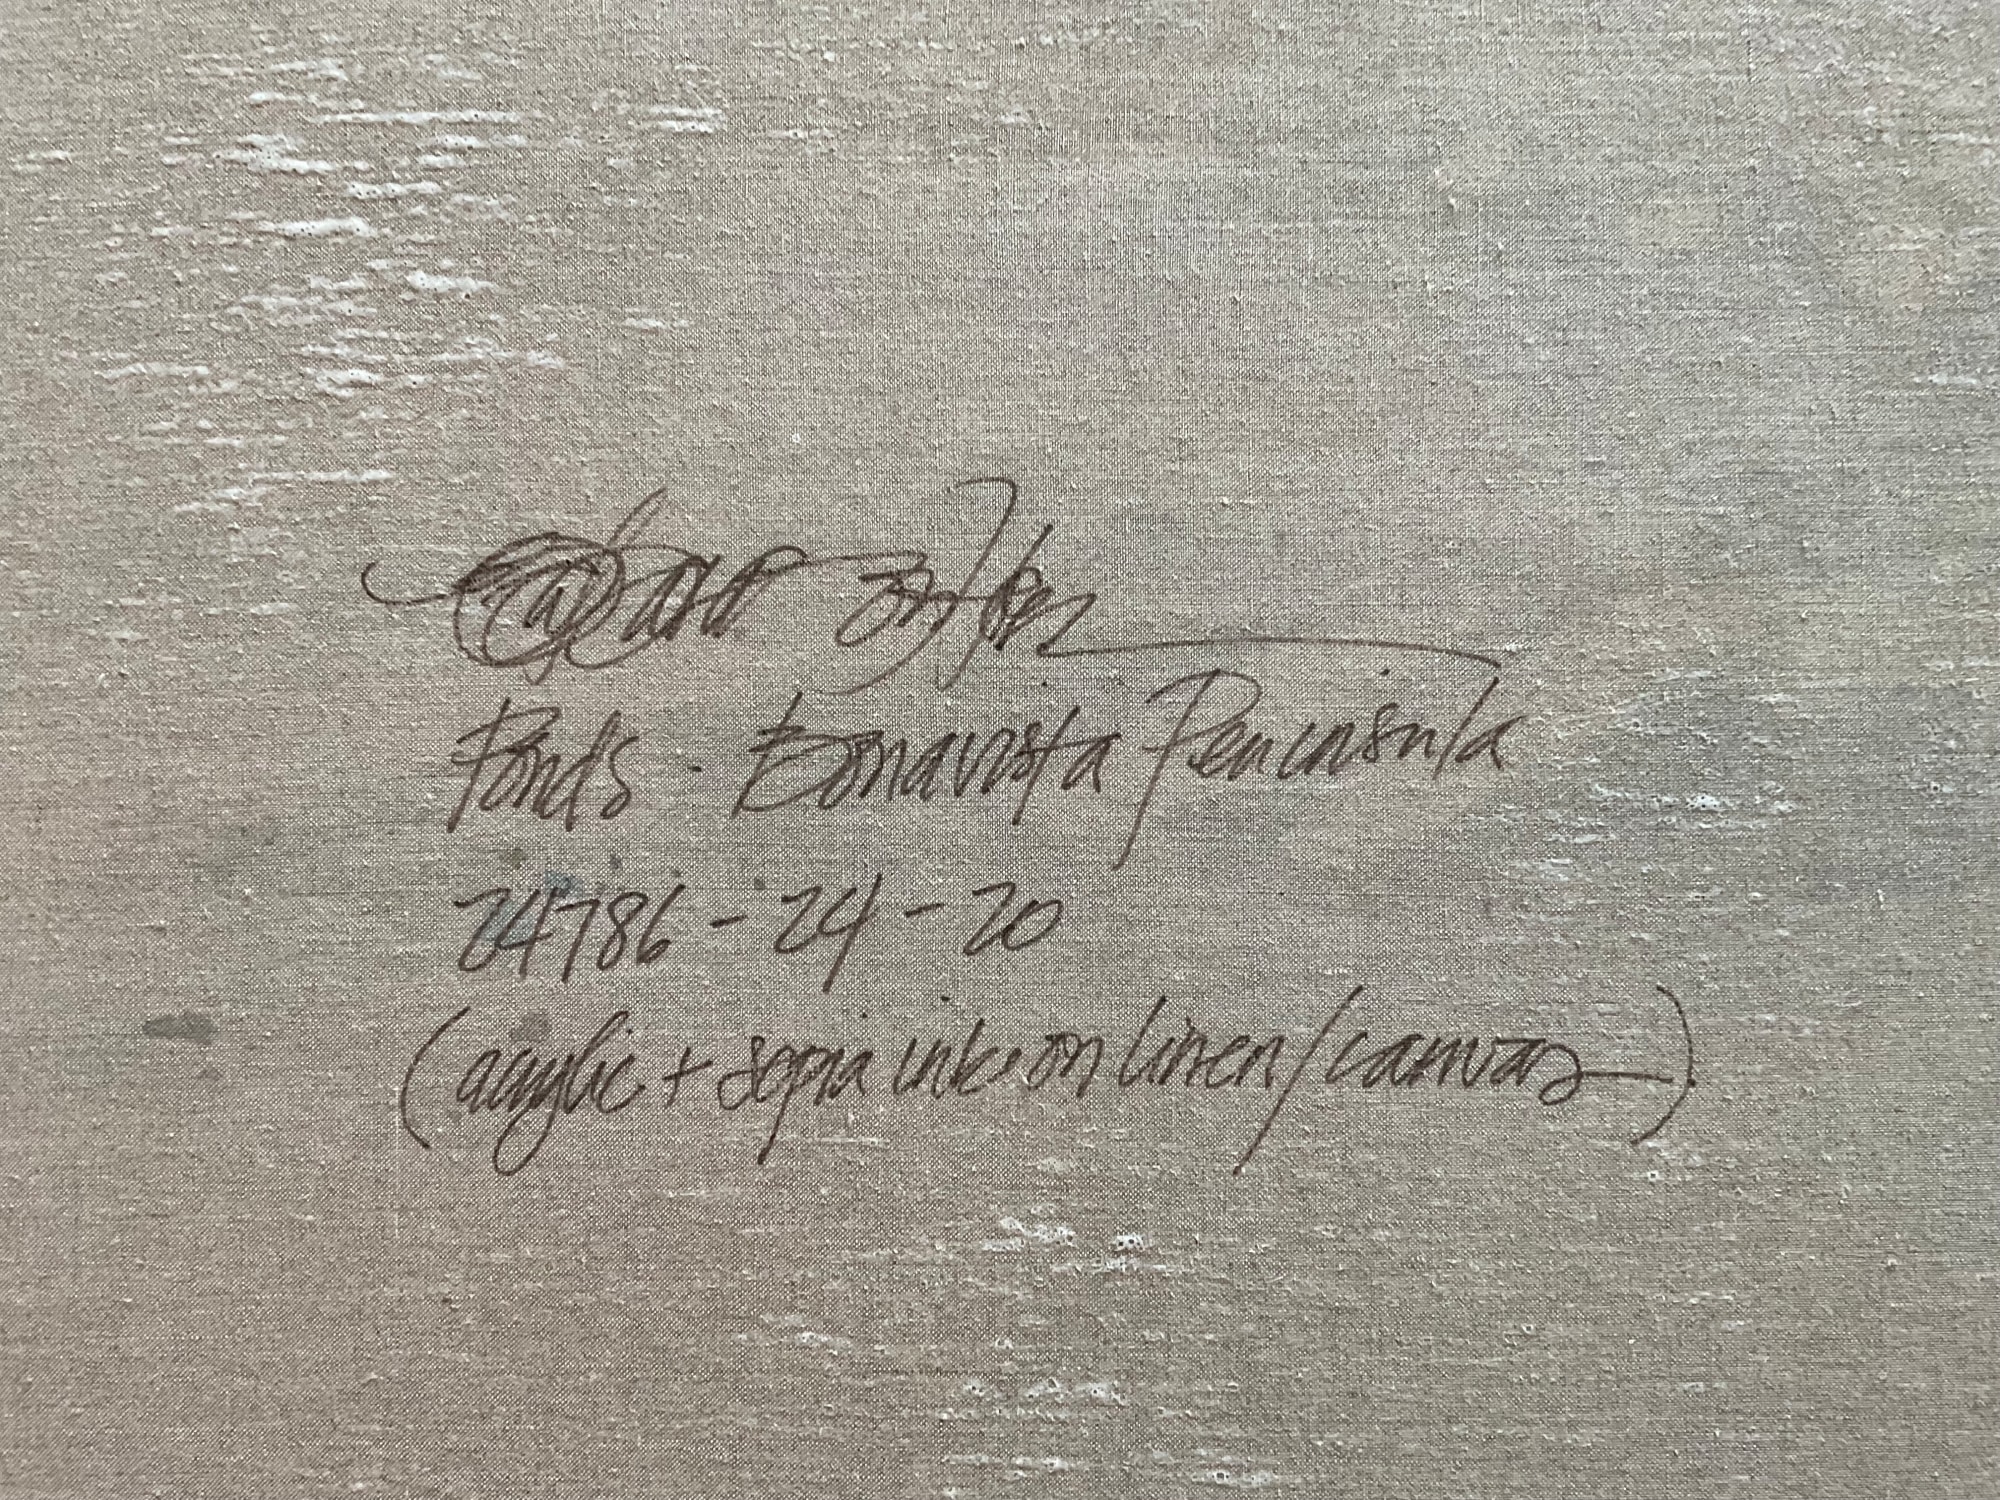 Ponds. Bonavista Peninsula
24786 - 24 - 20
(acrylic + sepia ink on linen/canvas)